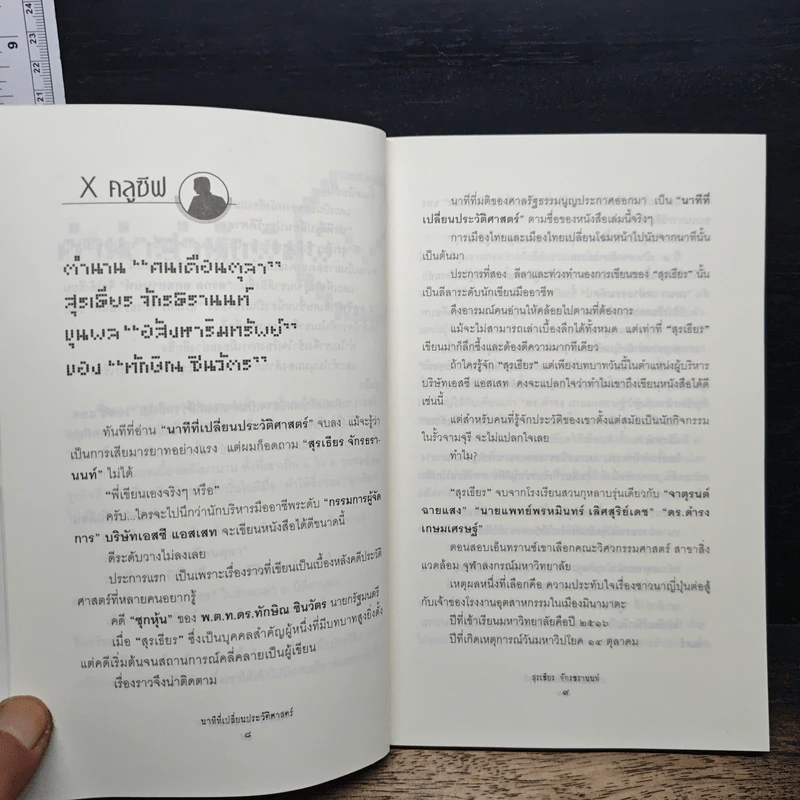 9
24
23
22
21
X คลูซีฟ
ตำนาน “คนเดือนตุลา”
สุรเธียร จักรธรานนท์
ขุนพล “อสังหาริมทรัพย์”
ของ “ทักษิณ ชินวัตร”
ทันทีที่อ่าน “นาทีที่เปลี่ยนประวัติศาสตร์” จบลง แม้จะรู้ว่า
เป็นการเสียมารยาทอย่างแรง แต่ผมก็อดถาม “สุรเธียร จักรธรา-
นนท์” ไม่ได้
“พี่เขียนเองจริงๆ หรือ”
ครับ...ใครจะไปนึกว่านักบริหารมืออาชีพระดับ “กรรมการผู้จัด
การ” บริษัทเอสซี แอสเสท จะเขียนหนังสือได้ดีขนาดนี้
ดีระดับวางไม่ลงเลย
ประการแรก เป็นเพราะเรื่องราวที่เขียนเป็นเบื้องหลังคดีประวัติ
ศาสตร์ที่หลายคนอยากรู้
คดี “ซุกหุ้น” ของ พ.ต.ท.ดร.ทักษิณ ชินวัตร นายกรัฐมนตรี
เมื่อ “สุรเธียร” ซึ่งเป็นบุคคลสำคัญผู้หนึ่งที่มีบทบาทสูงยิ่งตั้ง
แต่คดีเริ่มต้นจนสถานการณ์คลี่คลายเป็นผู้เขียน
เรื่องราวจึงน่าติดตาม
นาทีที่เปลี่ยนประวัติศาสตร์
๘
นาทีที่มติของศาลรัฐธรรมนูญประกาศออกมา เป็น “นาทีที่
เปลี่ยนประวัติศาสตร์” ตามชื่อของหนังสือเล่มนี้จริงๆ
การเมืองไทยและเมืองไทยเปลี่ยนโฉมหน้าไปนับจากนาทีนั้น
เป็นต้นมา
ประการที่สอง ลีลาและท่วงทำนองการเขียนของ “สุรเธียร” นั้น
เป็นลีลาระดับนักเขียนมืออาชีพ
ดึงอารมณ์คนอ่านให้คล้อยไปตามที่ต้องการ
แม้จะไม่สามารถเล่าเบื้องลึกได้ทั้งหมด แต่เท่าที่ “สุรเธียร”
เขียนมาก็ลึกซึ้งและต้องตีความมากทีเดียว
ถ้าใครรู้จัก “สุรเธียร” แต่เพียงบทบาทวันนี้ในตำแหน่งผู้บริหาร
บริษัทเอสซี แอสเสท คงจะแปลกใจว่าทำไมเขาถึงเขียนหนังสือได้ดี
เช่นนี้
แต่สำหรับคนที่รู้จักประวัติของเขาตั้งแต่สมัยเป็นนักกิจกรรม
ในรั้วจามจุรี จะไม่แปลกใจเลย
ทำไม?
“สุรเธียร” จบจากโรงเรียนสวนกุหลาบรุ่นเดียวกับ “จาตุรนต์
ฉายแสง” “นายแพทย์พรหมินทร์ เลิศสุริย์เดช” “ดร.ดำรง
เกษมเศรษฐ์”
ตอนสอบเอ็นทรานซ์เขาเลือกคณะวิศวกรรมศาสตร์ สาขาสิ่ง
แวดล้อม จุฬาลงกรณ์มหาวิทยาลัย
เหตุผลหนึ่งที่เลือกคือ ความประทับใจเรื่องชาวนาญี่ปุ่นต่อสู้
กับเจ้าของโรงงานอุตสาหกรรมในเมืองมินามาตะ
ปีที่เข้าเรียนมหาวิทยาลัยคือปี ๒๕๑๖
ปีที่เกิดเหตุการณ์วันมหาวิปโยค ๑๔ ตุลาคม
สุรเธียร จักรธรานนท์
๙